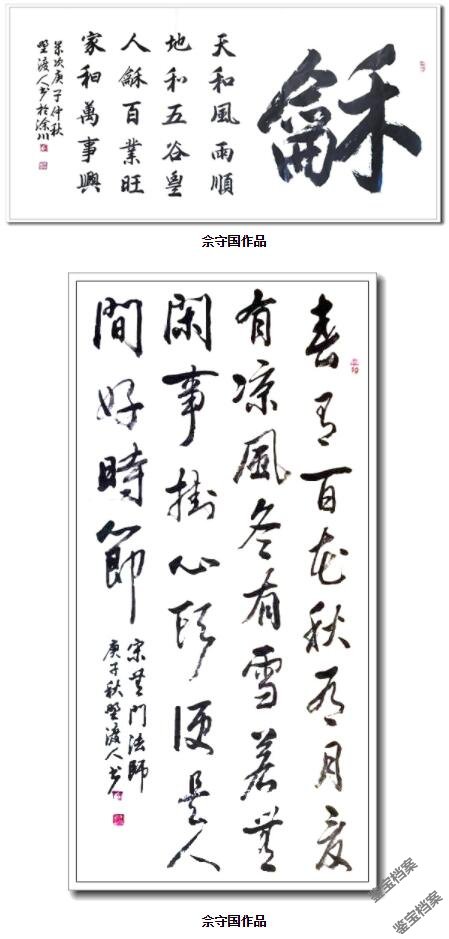 龢
天和風雨順
地和五谷豐
人龢百業旺
家和萬事興
歲次庚子仲秋
野渡人书於滁川
佘守国作品
春有百花秋有月夏
有凉風冬有雪若無
閑事掛心頭便是人
間好時節
宋無門法師
庚子秋野渡人书
鉴宝档案
鉴宝档案
佘守国作品